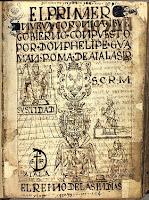 EL PRIMER
NVEVA CORONICA I BVE
GOBIERNO COMPVESTO
POR DON PHELIPE GVA
MAN POMA DE AIALA
S.C.R.M.
SV S[AN]TIDAD
AIALA
EL REINO DE LAS INDIAS